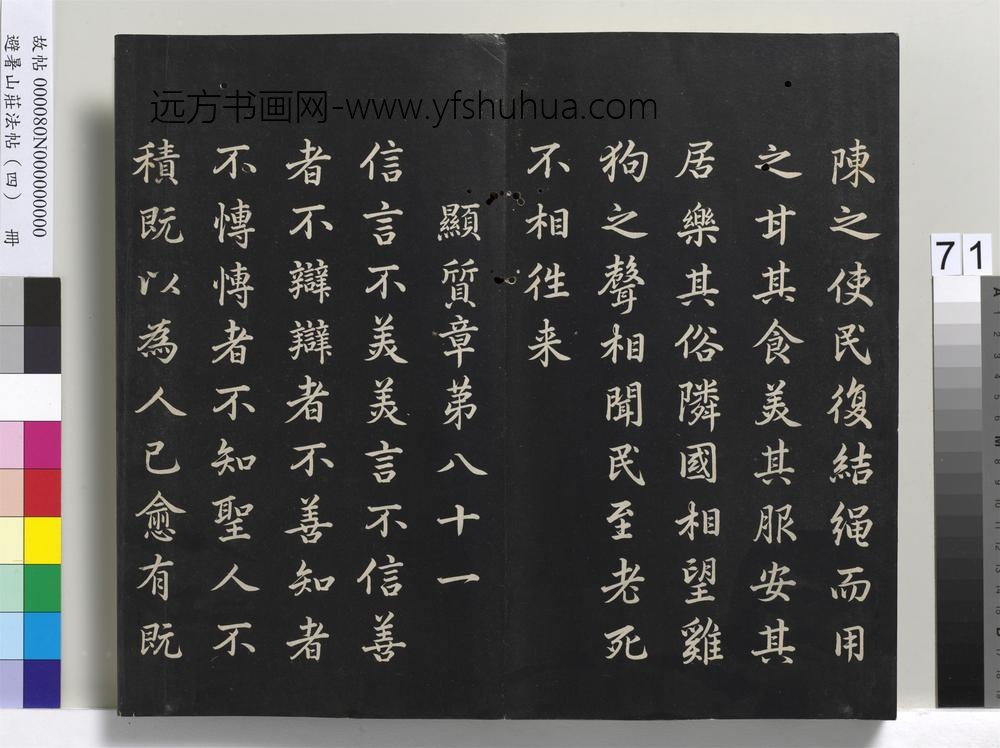 陳之使民復結繩而用
之甘其食美其服安其
居樂其俗隣國相望雞
狗之聲相聞民至老死
不相徃来
顯質章第八十一
信言不美美言不信善
者不辯辯者不善知者
不博博者不知聖人不
積既以為人已愈有既
远方书画网-www.yfshuhua.com
故帖 000080N000000000
避暑山莊法帖（四） 冊
71